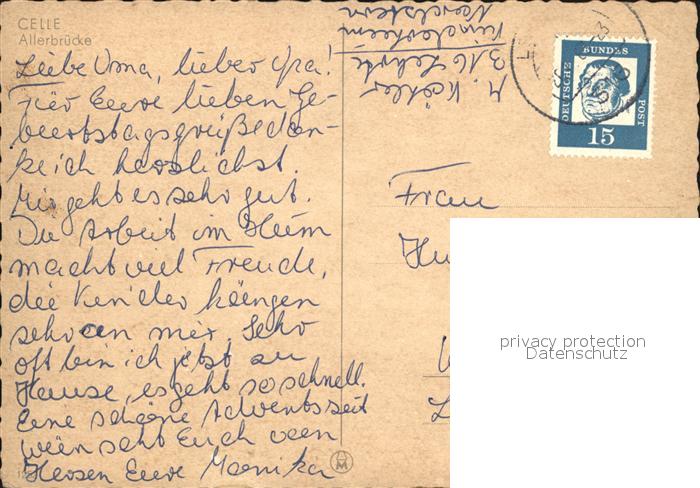 CELLE
Allerbrücke
Liebe Oma, lieber Opa!
Für Eure lieben Ge-
burtstagsgrüße dan-
ke ich herzlichst.
Mir geht es sehr gut.
Die Arbeit im Heim
macht viel Freude,
die Kinder hängen
sehr an mir. Sehr
oft bin ich jetzt zu
Hause, es geht so schnell.
Eine schöne Adventszeit
wünscht Euch von
Herzen Eure Monika
M. Köhler
316 Lehrte
Kinderheim
DEUTSCHE BUNDESPOST
15
Frau
privacy protection
Datenschutz